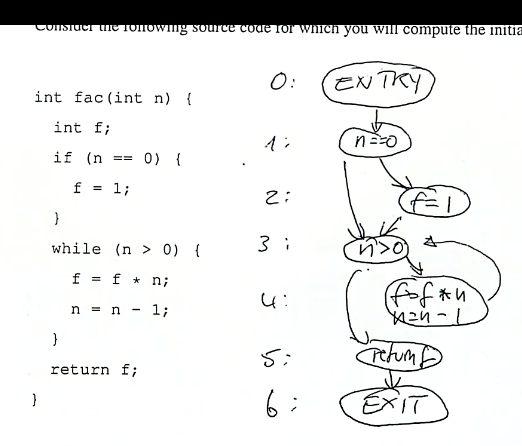 Consider the following source code for which you will compute the initia
int fac(int n) {
int f;
if (n == 0) {
f = 1;
}
while (n > 0) {
f = f * n;
n = n - 1;
}
return f;
}
0: ENTRY
1: n==0
2: f=1
3: n>0
4: f=f*n
n=n-1
5: return f
6: EXIT